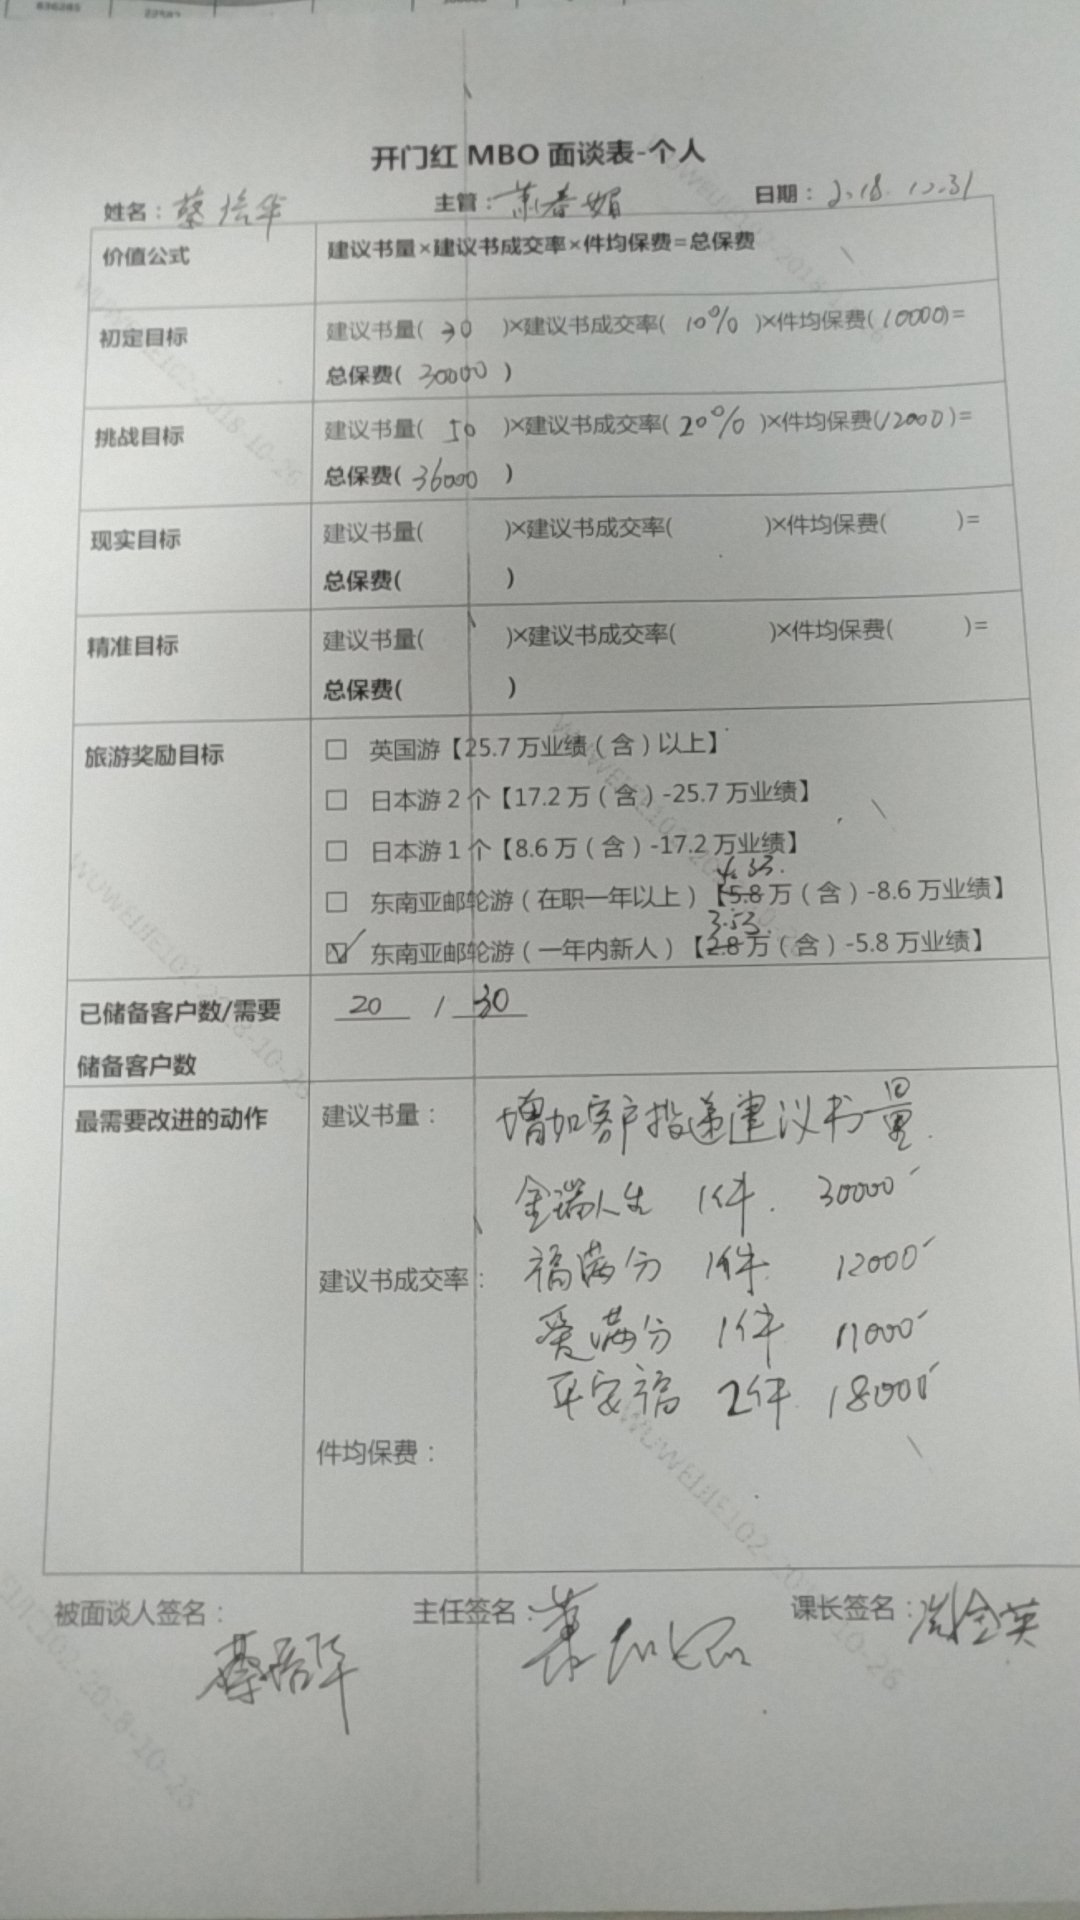 836285
22582
开门红 MBO 面谈表-个人
姓名：蔡培华 主管：萧春媚 日期：2.18.12.31
价值公式 建议书量×建议书成交率×件均保费=总保费
初定目标 建议书量( 30 )×建议书成交率( 10% )×件均保费(10000)=
总保费( 30000 )
挑战目标 建议书量( 50 )×建议书成交率( 20% )×件均保费(12000)=
总保费( 36000 )
现实目标 建议书量( )×建议书成交率( )×件均保费( )=
总保费( )
精准目标 建议书量( )×建议书成交率( )×件均保费( )=
总保费( )
旅游奖励目标 □ 英国游【25.7 万业绩（含）以上】
□ 日本游 2 个【17.2 万（含）-25.7 万业绩】
□ 日本游 1 个【8.6 万（含）-17.2 万业绩】
□ 东南亚邮轮游（在职一年以上）【5.8 万（含）-8.6 万业绩】
3.53.
☑ 东南亚邮轮游（一年内新人）【2.8 万（含）-5.8 万业绩】
已储备客户数/需要 20 / 30
储备客户数
最需要改进的动作 建议书量： 增加客户投递建议书量.
金瑞人生 1件. 30000
建议书成交率： 福满分 1件. 12000
爱满分 1件 11000
平安福 2件. 18000
件均保费：
被面谈人签名： 主任签名： 课长签名：
蔡培华
WUWEIJIE102-2018-10-26